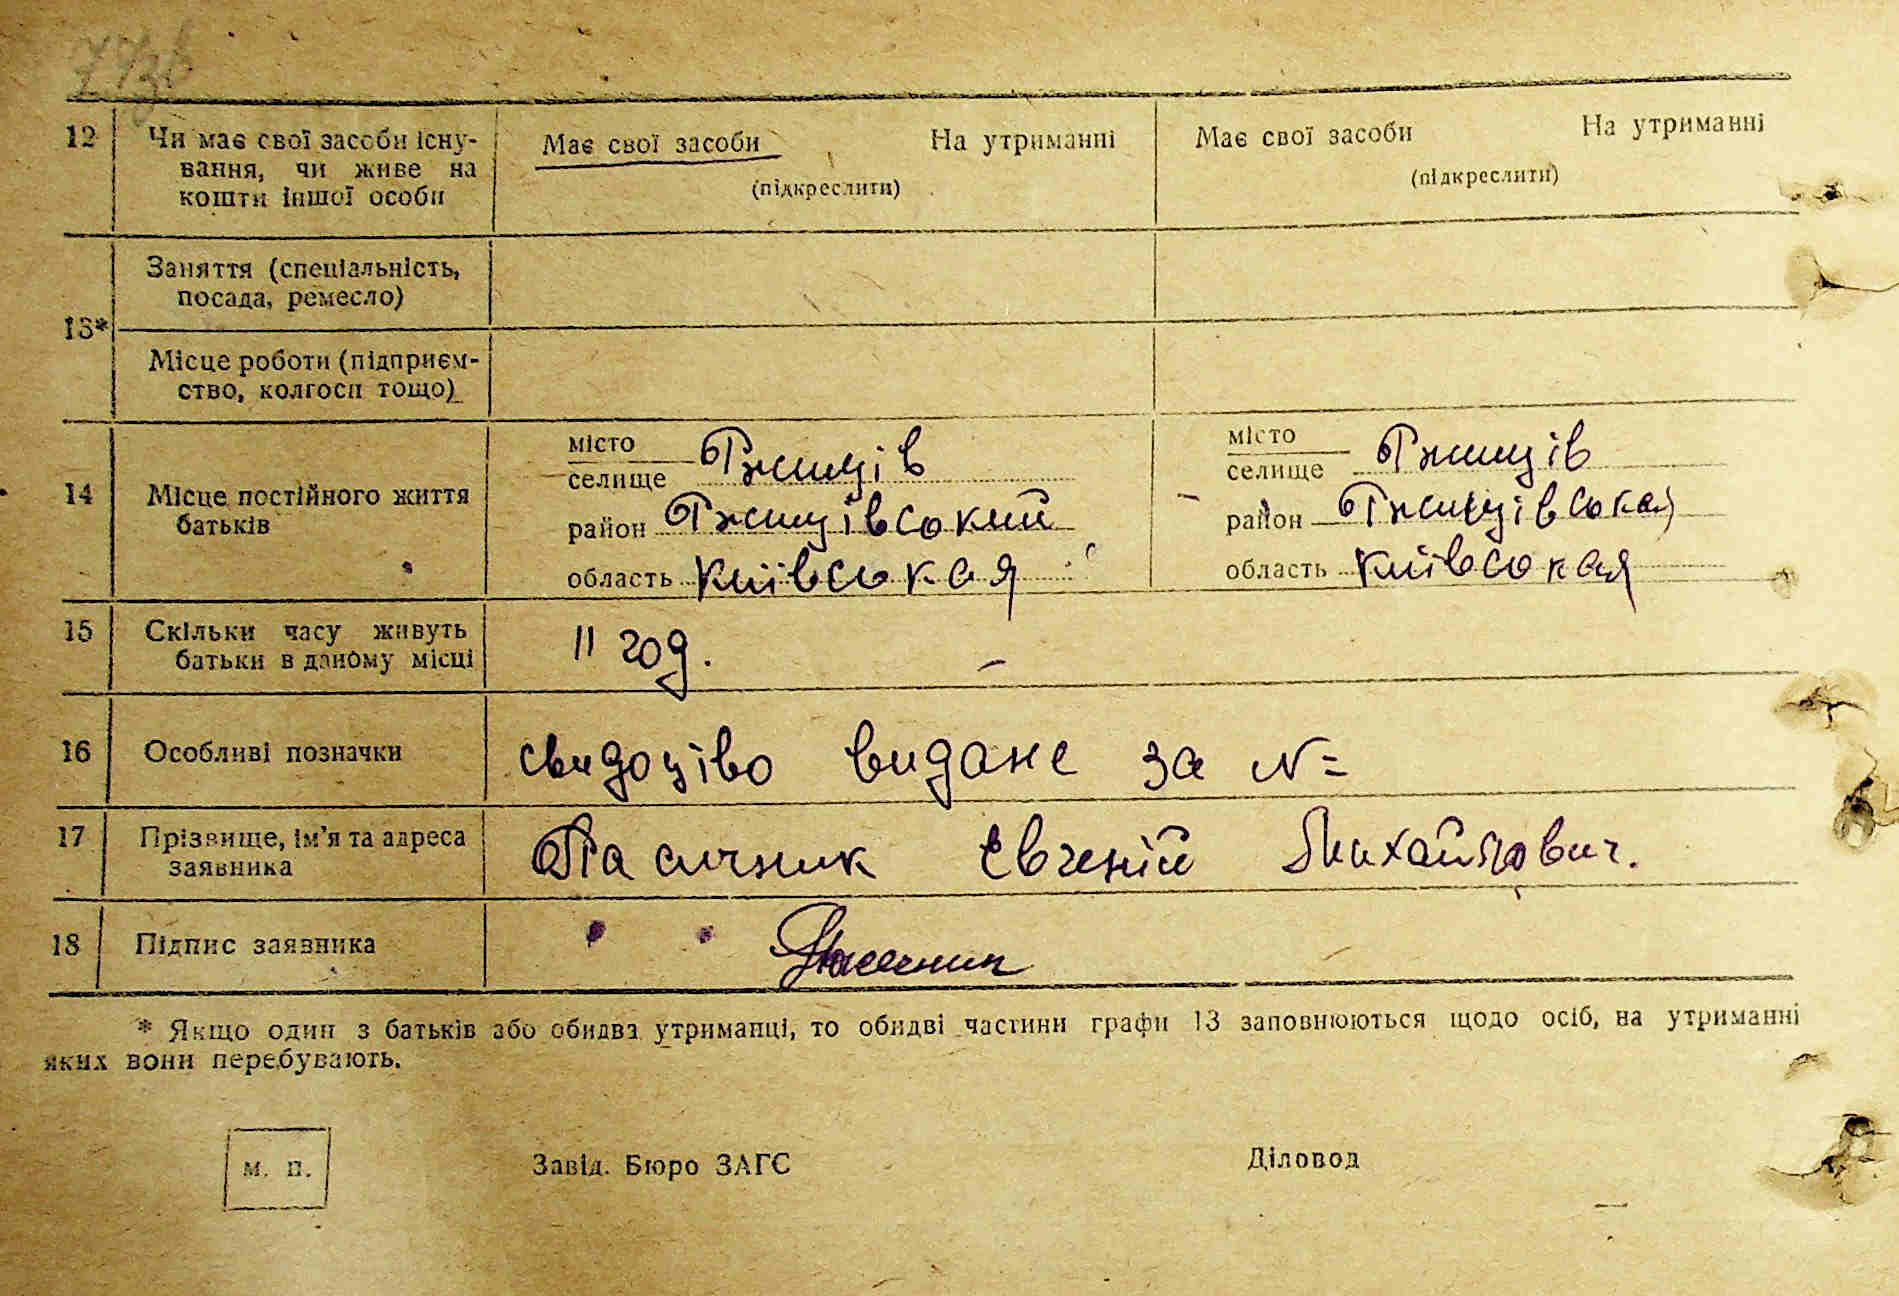 12 Чи має свої засоби існу-
вання, чи живе на
кошти іншої особи
Має свої засоби На утриманні
(підкреслити)
Має свої засоби На утриманні
(підкреслити)
13*
Заняття (спеціальність,
посада, ремесло)
Місце роботи (підприєм-
ство, колгосп тощо)
14 Місце постійного життя
батьків
місто
селище Ржищів
район Ржищівський
область Київськая
місто
селище Ржищів
район Ржищівськая
область Київськая
15 Скільки часу живуть
батьки в даному місці
11 год.
16 Особливі позначки
свидоціво видане за №=
17 Прізвище, ім'я та адреса
заявника
Пасичник Євгеній Михайлович.
18 Підпис заявника
Пасечник
* Якщо один з батьків або обидва утриманці, то обидві частини графи 13 заповнюються щодо осіб, на утриманні
яких вони перебувають.
м. п.
Завід. Бюро ЗАГС
Діловод